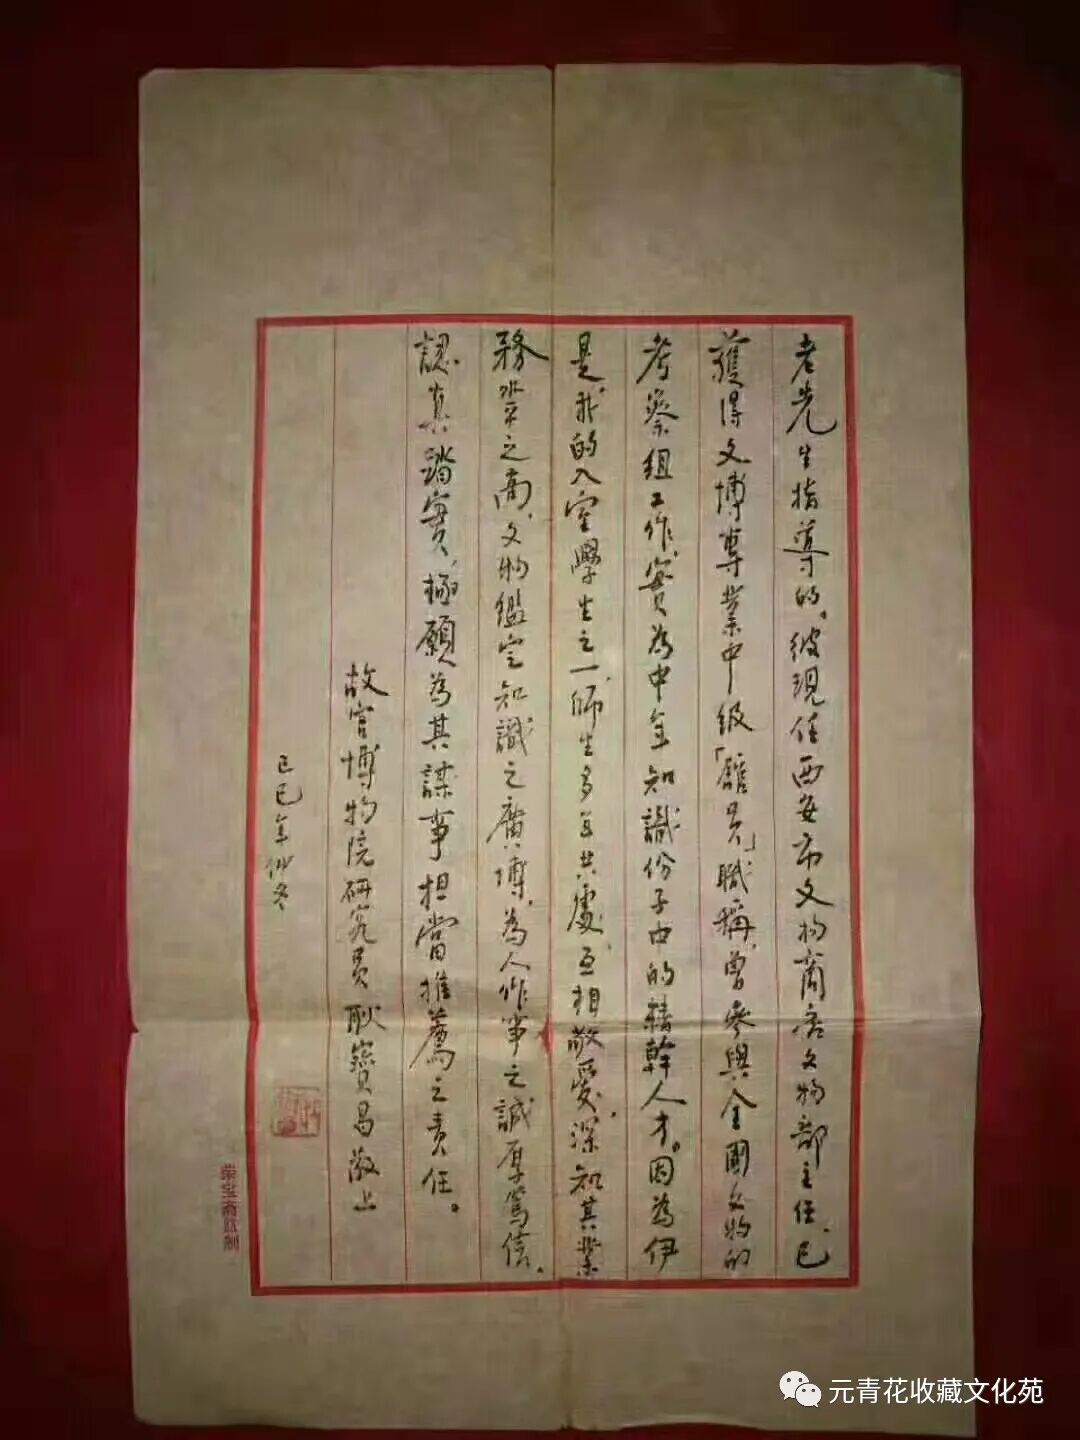 老先生指導的。彼現任西安市文物商店文物部主任、已
獲得文博專業中級「館員」職稱，曾參與全國文物的
考察組工作，實為中年知識份子中的精幹人才。因為伊
是我的入室學生之一，師生多年共處，互相敬愛，深知其業
務水平之高，文物鑑定知識之廣博，為人作事之誠厚篤信。
認真踏實，極願為其謀事担當推薦之責任。
故宮博物院研究員耿寶昌敬上
己巳年仲冬
榮宝齋監制
元青花收藏文化苑